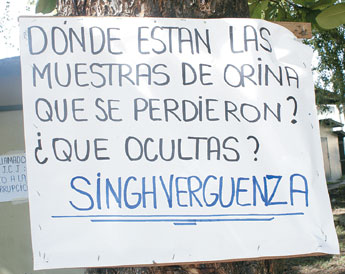 DÓNDE ESTAN LAS
MUESTRAS DE ORINA
QUE SE PERDIERON?
¿QUE OCULTAS?
SINGHVERGUENZA
LLAMADO
I.C.I.
TO A LA
RRUPCIO